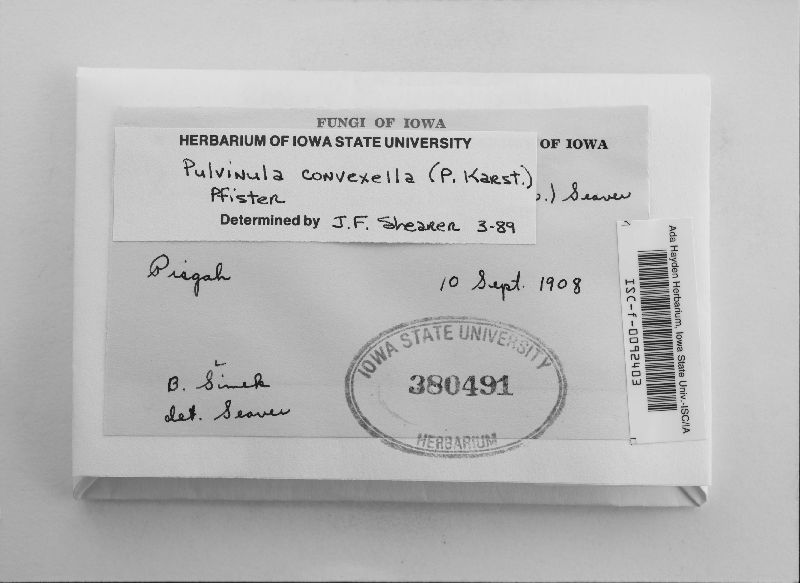 FUNGI OF IOWA
HERBARIUM OF IOWA STATE UNIVERSITY
OF IOWA
Pulvinula convexella (P. Karst.)
Pfister
.) Seaver
Determined by J.F. Shearer 3-89
Pisgah
10 Sept. 1908
B. Šimek
det. Seaver
IOWA STATE UNIVERSITY
380491
HERBARIUM
Ada Hayden Herbarium, Iowa State Univ.-ISC/IA
ISC-f-0092403